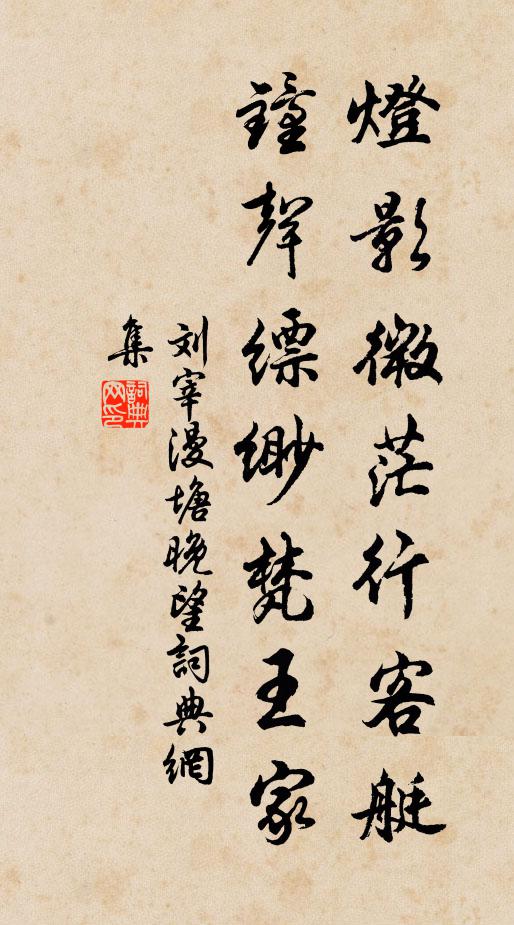 燈影微茫行客艇
鐘聲縹緲梵王家
刘宰漫塘晚望詞典網
集
詞典网印